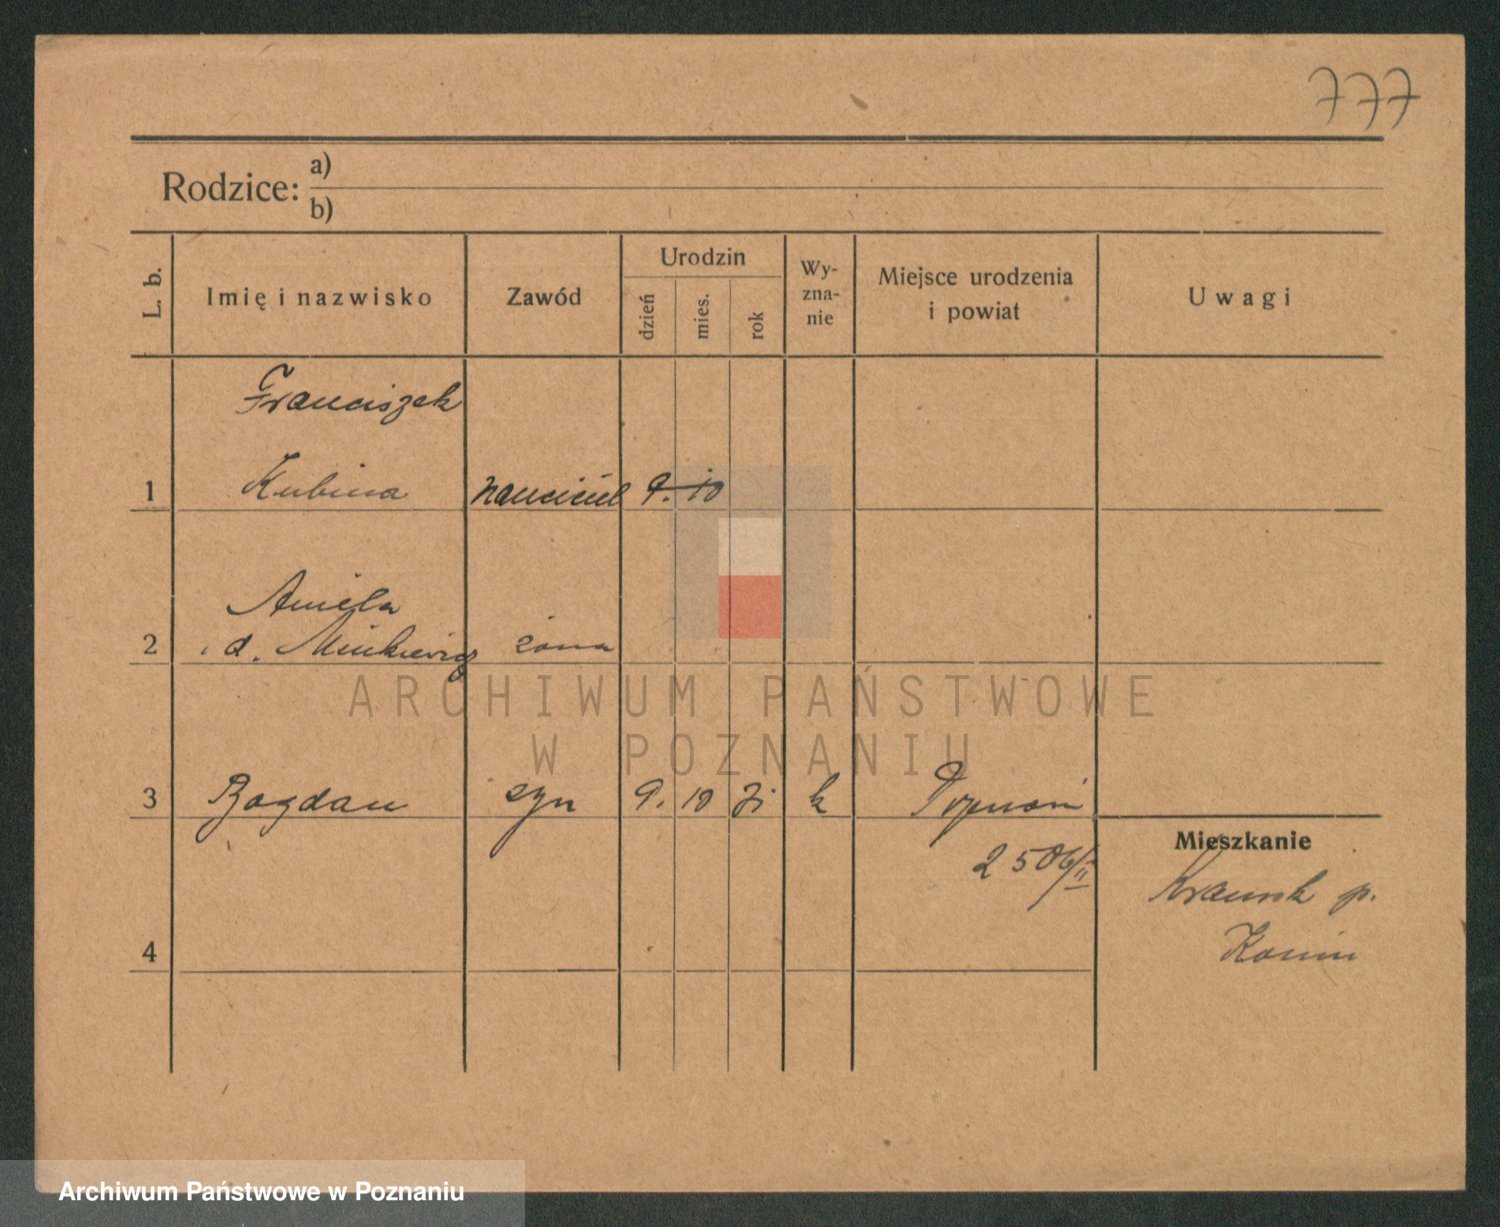 777
Rodzice:
a)
b)
L. b.
Imię i nazwisko
Zawód
Urodzin
dzień
mies.
rok
Wy-
zna-
nie
Miejsce urodzenia
i powiat
Uwagi
Franciszek
1 Kubina nauciciel 9. 10
Aniela
2 d. Minkiewicz żona
3 Bogdan syn 9. 10 31 k Poznań
2506/II
Mieszkanie
p.
Konin
4
ARCHIWUM PAŃSTWOWE
W POZNANIU
Archiwum Państwowe w Poznaniu